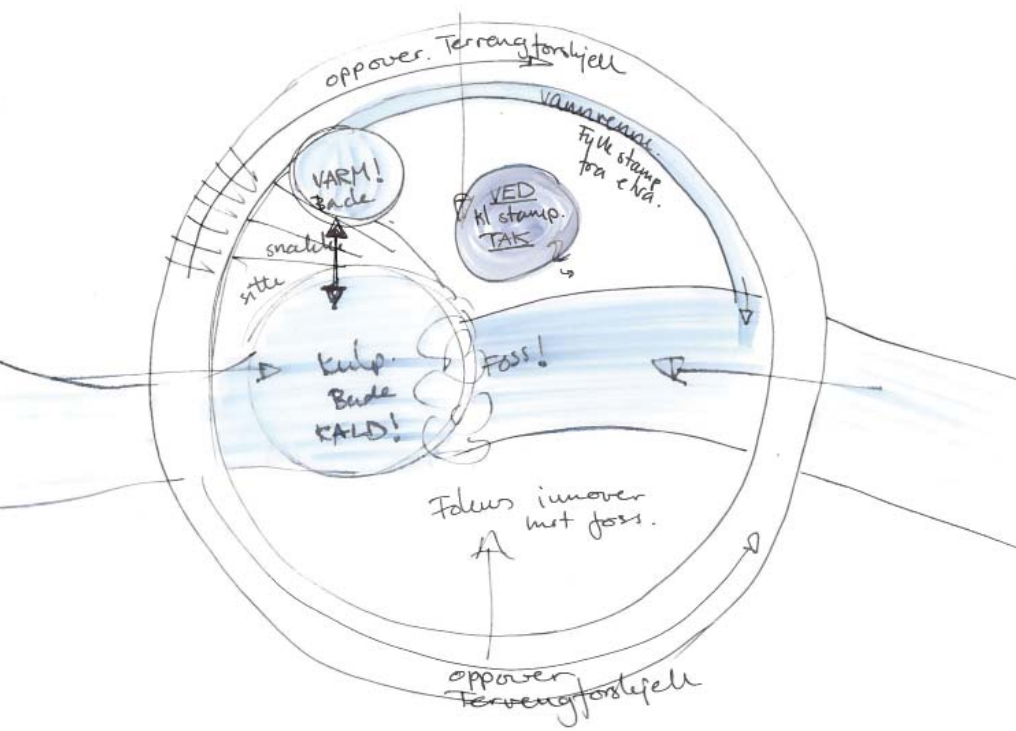 oppover. Terrengforskjell
vannrenne.
Fylle stamp
fra elva.
VARM!
Bade
VED
kl stamp.
TAK
snakke
sitte
Kulp.
Bade
KALD!
FOSS!
Fokus innover
mot foss.
oppover
Terrengforskjell